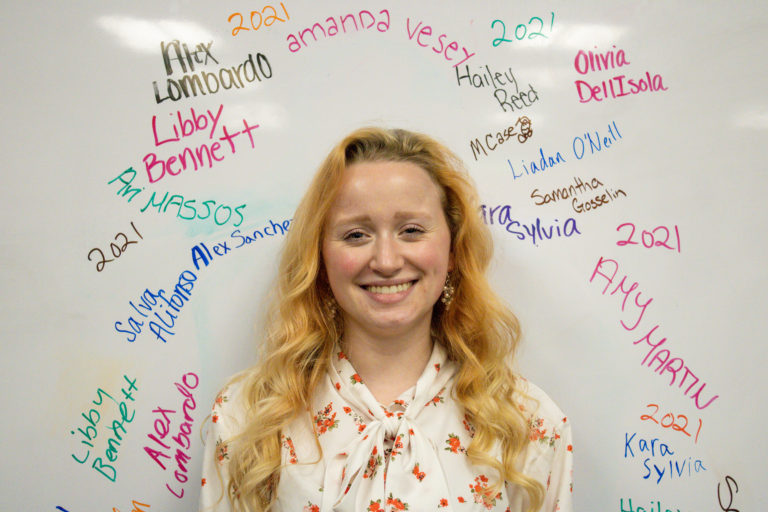 2021
amanda vesey
2021
Alex
Lombardo
Hailey
Reed
Olivia
Dell'Isola
Libby
Bennett
MCase
Liadan O'Neill
Ari MASSOS
Samantha
Gosselin
2021
Alex Sanchez
ara
Sylvia
2021
Salva
Alifonso
AMY
MARTIN
Libby
Bennett
Alex
Lombardo
2021
Kara
Sylvia
Hailey